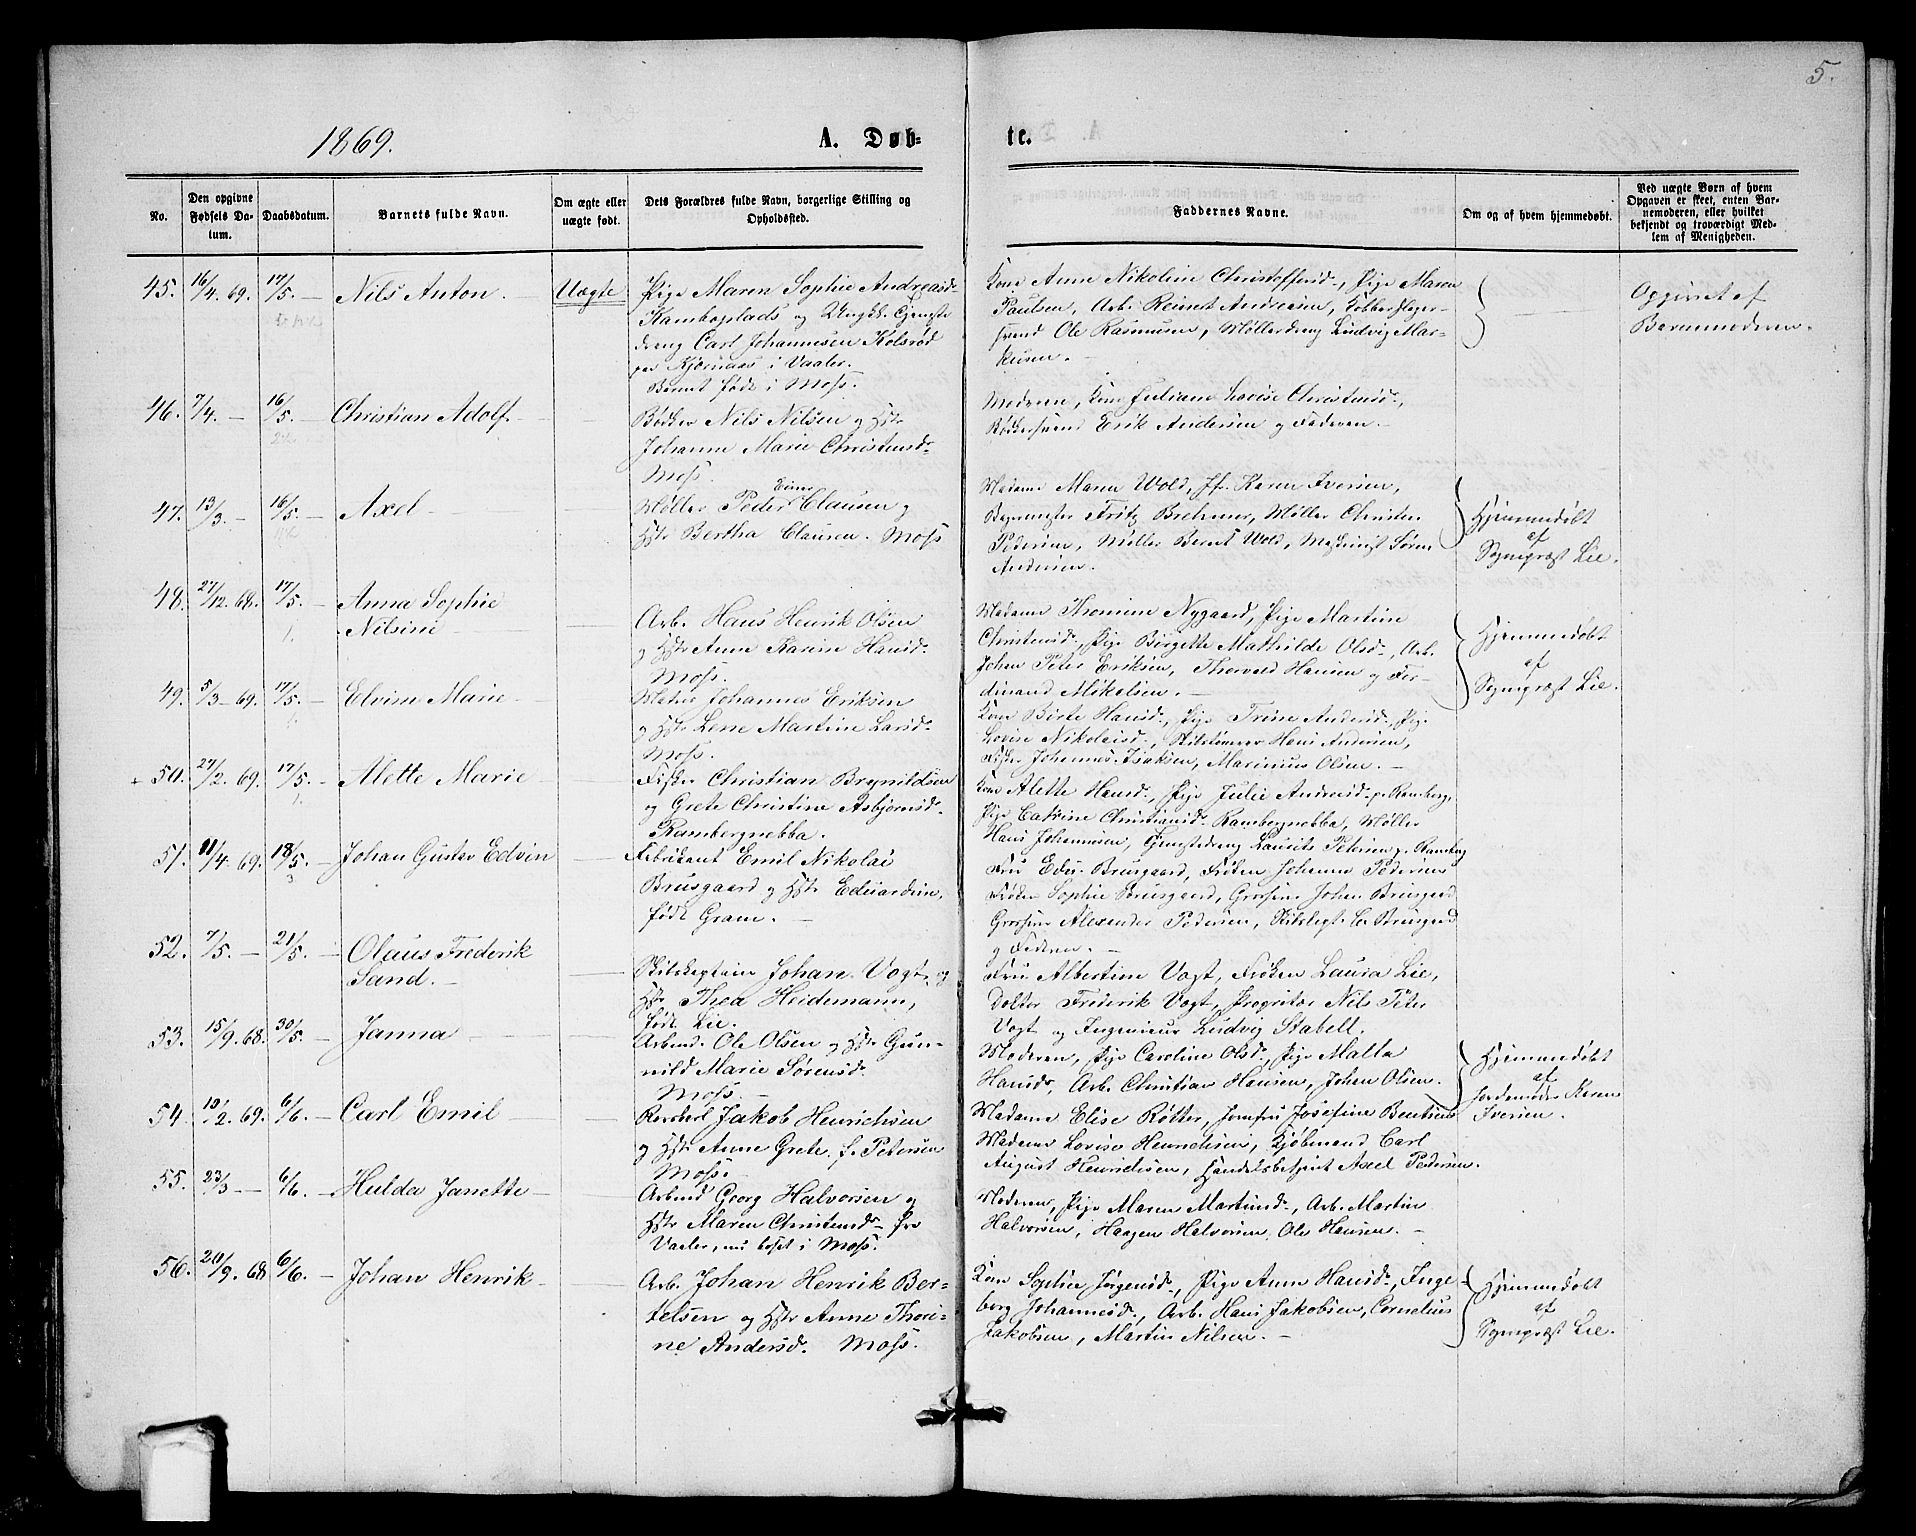 5.
1869. A. Døb- te.
No. Den opgivne Fødsels Datum. Daabsdatum. Barnets fulde Navn. Om ægte eller uægte født. Dets Forældres fulde Navn, borgerlige Stilling og Opholdssted. Faddernes Navne. Om og af hvem hjemmedøbt. Ved uægte Børn af hvem Opgaven er skeet, enten Barnemoderen, eller hvilket bekjendt og troværdigt Medlem af Menigheden.
45. 16/4. 69. 17/5. — Nils Anton. Uægte Pige Maren Sophie Andreasd.
Kamboplads og Ungk. Tjeneste
dreng Carl Johannesen Kolsrød
paa Kjærnæs i Vaaler.
Barnet født i Moss.
Kone Anne Nikoline Christoffersd., Pige Maren
Paulsen, Arb. Reinert Andreasen, Kobberslager-
svend Ole Rasmusen, Møllerdreng Ludvig Mar-
kusen. —
Opgivet af
Barnemoderen.
46. 7/4. — 16/5. — Christian Adolf. Bødker Nils Nilsen og Hstr
Johanne Marie Christensd.
Moss.
Moderen, Kone Juliane Lovise Christensd.,
Bødkersvend Erik Andersen og Faderen. —
47. 13/3. — 16/5. — Axel Møller Peder Einar Clausen og
Hstr Bertha Clausen. Moss
Madame Maren Wold, Jfr. Karen Iversen,
Bagermester Fritz Brehmer, Møller Christen
Pedersen, Møller Bernt Wold, Maskinist Søren
Andersen.
Hjemmedøbt
af
Sogneprest Lie.
48. 27/12. 68. 17/5. — Anna Sophie
Nilsine — Arb. Hans Henrik Olsen
og Hstr Anne Karine Hansd.
Moss.
Madame Thomine Nygaard, Pige Martine
Christensd., Pige Birgette Mathilde Olsd., Arb.
Johan Peter Eriksen, Thorvald Hansen og Fer-
dinand Mikelsen. —
Hjemmedøbt
af
Sogneprest Lie.
49. 5/3 — 69. 17/5. — Elvine Marie Matros Johannes Eriksen
og Hstr Lene Martine Larsd.
Moss.
Kone Birte Hansd., Pige Trine Andersd., Pige
Lovise Nikolaisd., Skibstømmer Hans Andersen,
Fisker Johannes Isaksen, Marinius Olsen. —
+ 50. 27/2. 69. 17/5. — Alette Marie Fisker Christian Brynildsen
og Grete Christine Asbjørnsd.
Rambergnebba.
Kone Alette Hansd., Pige Julie Andreasd. p. Ramberg,
Pige Catrine Christiansd. Rambergnebba, Møller
Hans Johannesen, Tjenestedreng Laurits Petersen p. Ramberg
51. 11/4. 69. 18/5. — Johan Gustav Edvin Fabrikant Emil Nikolai
Brusgaard og Hstr Eduardine,
født Gram. —
Fru Edle Brusgaard, Frøken Johanne Pedersen
Frøken Sophie Brusgaard, Grosserer Johan Brusgaard
Grosserer Alexander Pedersen, Brusgaard
og Faderen. —
52. 7/5. — 21/5. — Olaus Frederik
Sand. — Skibskaptein Johan Vogt og
Hstr Thea Heidemann,
født Lie.
Fru Albertine Vogt, Frøken Laura Lie,
Doktor Frederik Vogt, Proprietær Nils Peter
Vogt og Ingenieur Ludvig Stabell.
53. 15/9. 68. 30/5. — Janna Arbmd. Ole Olsen og Hstr Gun-
nild Marie Sørensd.
Moss. —
Moderen, Pige Caroline Olsd., Pige Malla
Hansd., Arb. Christian Hansen, Johan Olsen.
Hjemmedøbt
af
Jordemoder Karen
Iversen.
54. 10/2. 69. 6/6. — Carl Emil Jakob Henrichsen
og Hstr Anne Grete f. Petersen
Moss.
Madame Elise Røtter, Jomfru Josefine Bentsen
Madame Lovise Henrichsen, Kjøbmand Carl
August Henrichsen, Handelsbetjent Axel Pedersen.
55. 23/3 — 6/6. — Hulda Janette Arbmd Georg Halvorsen og
Hstr Maren Christensd. fra
Vaaler, nu boset i Moss.
Moderen, Pige Maren Martinsd., Arb. Martin
Halvorsen, Haagen Halvorsen, Ole Hansen. —
56. 20/9. 68 6/6. — Johan Henrik Arb. Johan Henrik Ber-
telsen og Hstr Anne Thori-
ne Andersd. Moss.
Kone Sophie Jørgensd., Pige Anne Hansd., Inge-
borg Johannesd., Arb. Hans Jakobsen, Cornelius
Jakobsen, Martin Nilsen. —
Hjemmedøbt
af
Sogneprest Lie.